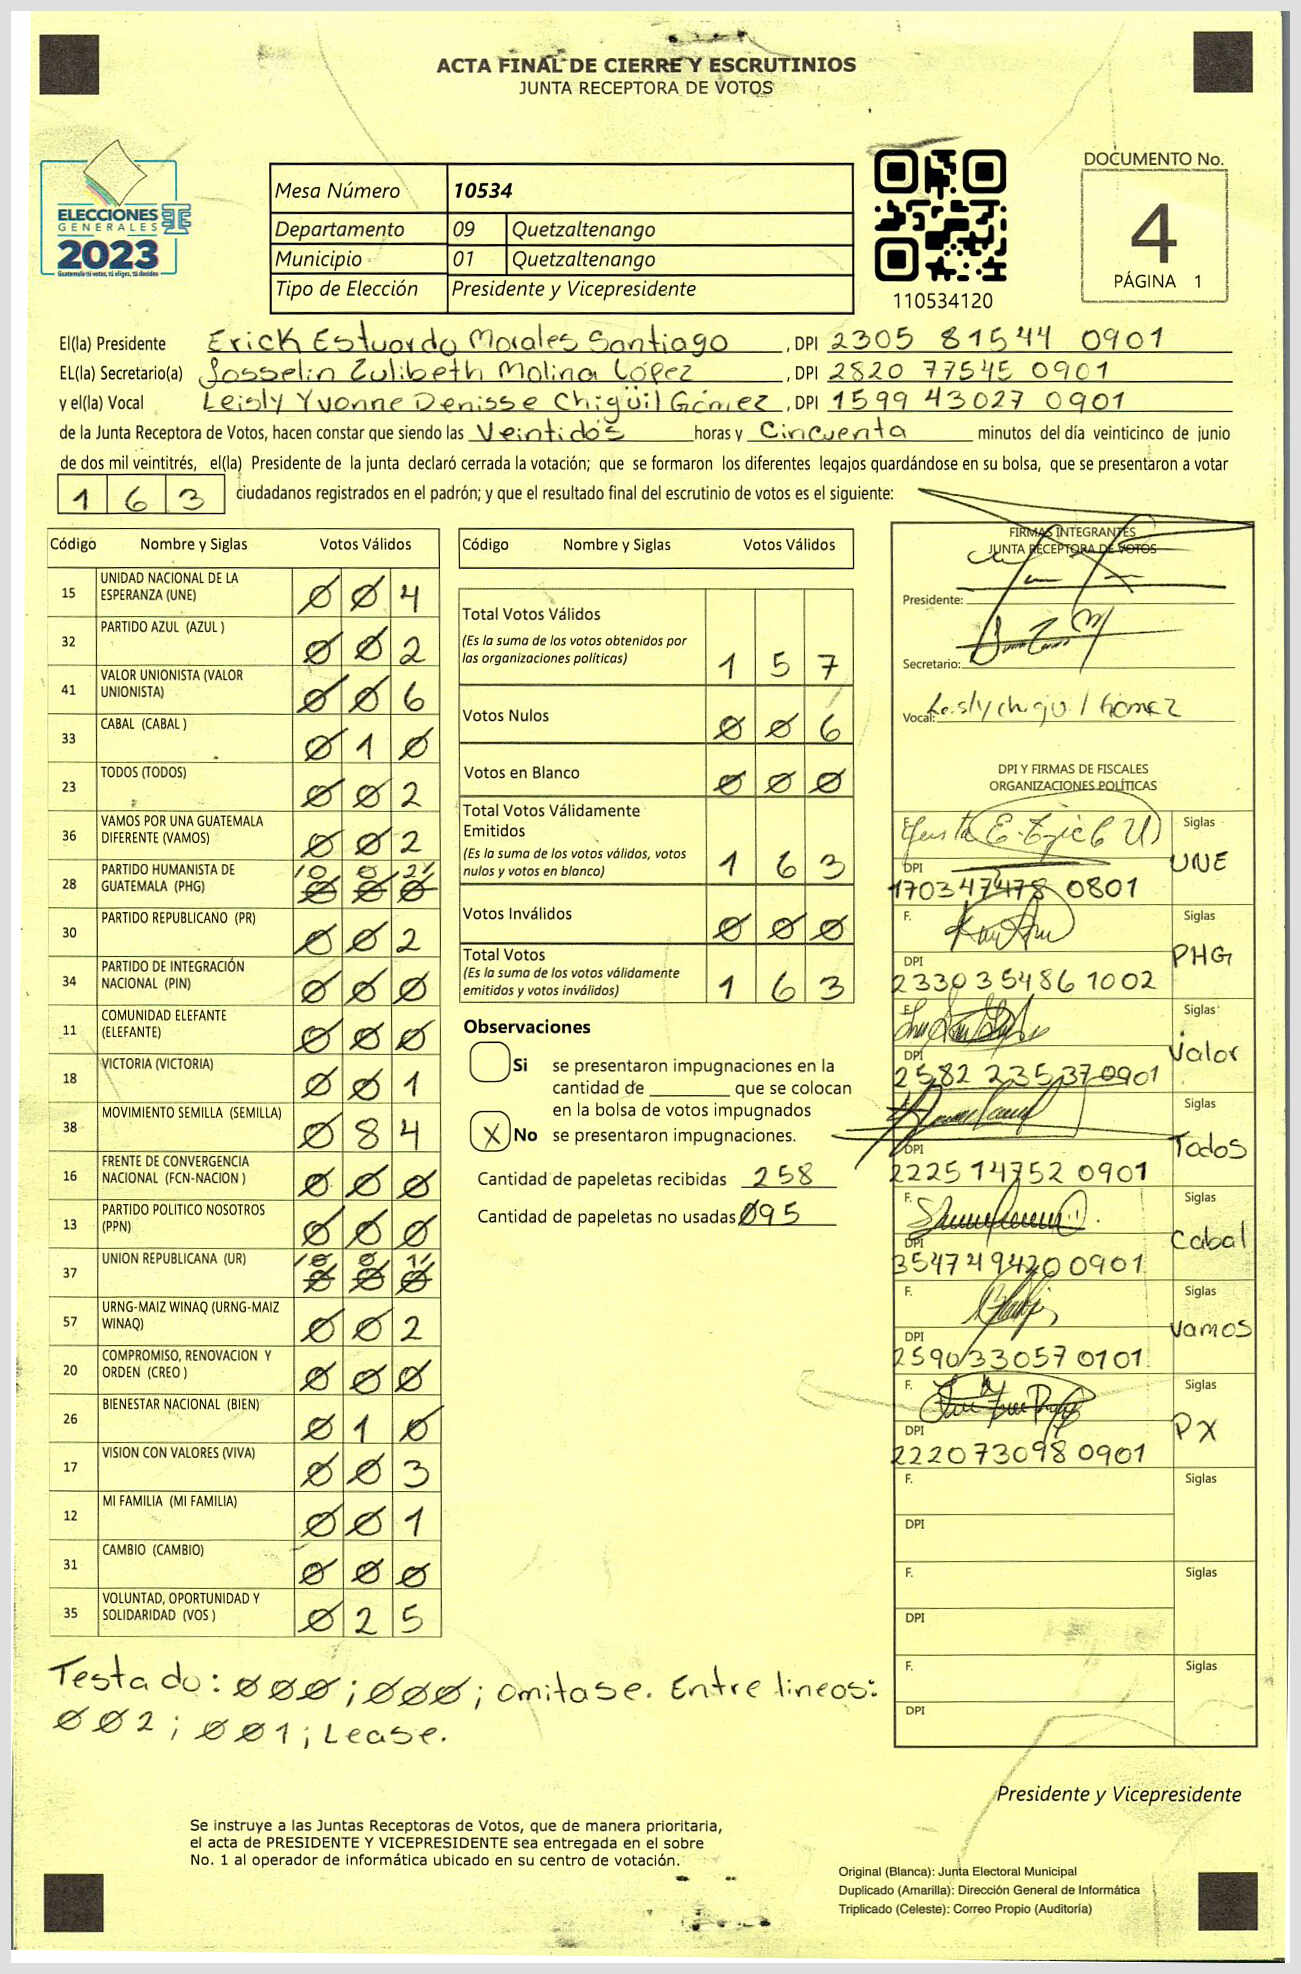 ACTA FINAL DE CIERRE Y ESCRUTINIOS
JUNTA RECEPTORA DE VOTOS
ELECCIONES
GENERALES
2023
Guatemala tú votas, tú eliges, tú decides
Mesa Número 10534
Departamento 09 Quetzaltenango
Municipio 01 Quetzaltenango
Tipo de Elección Presidente y Vicepresidente
110534120
DOCUMENTO No.
4
PÁGINA 1
El(la) Presidente Erick Estuardo Morales Santiago, DPI 2305 81544 0901
EL(la) Secretario(a) Josselin Zulibeth Molina López, DPI 2820 77545 0901
y el(la) Vocal Leisly Yvonne Denisse Chigüil Gómez, DPI 1599 43027 0901
de la Junta Receptora de Votos, hacen constar que siendo las Veintidós horas y Cincuenta minutos del día veinticinco de junio
de dos mil veintitrés, el(la) Presidente de la junta declaró cerrada la votación; que se formaron los diferentes legajos guardándose en su bolsa, que se presentaron a votar
163 ciudadanos registrados en el padrón; y que el resultado final del escrutinio de votos es el siguiente:
Código Nombre y Siglas Votos Válidos
15 UNIDAD NACIONAL DE LA ESPERANZA (UNE) 004
32 PARTIDO AZUL (AZUL ) 002
41 VALOR UNIONISTA (VALOR UNIONISTA) 006
33 CABAL (CABAL ) 010
23 TODOS (TODOS) 002
36 VAMOS POR UNA GUATEMALA DIFERENTE (VAMOS) 002
28 PARTIDO HUMANISTA DE GUATEMALA (PHG) 002 000
30 PARTIDO REPUBLICANO (PR) 002
34 PARTIDO DE INTEGRACIÓN NACIONAL (PIN) 000
11 COMUNIDAD ELEFANTE (ELEFANTE) 000
18 VICTORIA (VICTORIA) 001
38 MOVIMIENTO SEMILLA (SEMILLA) 084
16 FRENTE DE CONVERGENCIA NACIONAL (FCN-NACION ) 000
13 PARTIDO POLITICO NOSOTROS (PPN) 000
37 UNION REPUBLICANA (UR) 001 000
57 URNG-MAIZ WINAQ (URNG-MAIZ WINAQ) 002
20 COMPROMISO, RENOVACION Y ORDEN (CREO ) 000
26 BIENESTAR NACIONAL (BIEN) 010
17 VISION CON VALORES (VIVA) 003
12 MI FAMILIA (MI FAMILIA) 001
31 CAMBIO (CAMBIO) 000
35 VOLUNTAD, OPORTUNIDAD Y SOLIDARIDAD (VOS ) 025
Código Nombre y Siglas Votos Válidos
Total Votos Válidos
(Es la suma de los votos obtenidos por
las organizaciones políticas) 157
Votos Nulos 006
Votos en Blanco 000
Total Votos Válidamente
Emitidos
(Es la suma de los votos válidos, votos
nulos y votos en blanco) 163
Votos Inválidos 000
Total Votos
(Es la suma de los votos válidamente
emitidos y votos inválidos) 163
Observaciones
Si se presentaron impugnaciones en la
cantidad de ________ que se colocan
en la bolsa de votos impugnados
X No se presentaron impugnaciones.
Cantidad de papeletas recibidas 258
Cantidad de papeletas no usadas 095
FIRMAS INTEGRANTES
JUNTA RECEPTORA DE VOTOS
Presidente:
Secretario:
Vocal: Leisly chigüil Gómez
DPI Y FIRMAS DE FISCALES
ORGANIZACIONES POLÍTICAS
F. Siglas UNE
DPI 1703 47478 0801
F. Siglas PHG
DPI 2330 35486 1002
F. Siglas Valor
DPI 2582 23537 0901
F. Siglas Todos
DPI 2225 14752 0901
F. Siglas Cabal
DPI 3547 49420 0901
F. Siglas Vamos
DPI 2590 33057 0101
F. Siglas PX
DPI 2220 73098 0901
F. Siglas
DPI
F. Siglas
DPI
F. Siglas
DPI
Testado: 000; 000; omitase. Entre lineos:
002; 001; Lease.
Presidente y Vicepresidente
Se instruye a las Juntas Receptoras de Votos, que de manera prioritaria,
el acta de PRESIDENTE Y VICEPRESIDENTE sea entregada en el sobre
No. 1 al operador de informática ubicado en su centro de votación.
Original (Blanca): Junta Electoral Municipal
Duplicado (Amarilla): Dirección General de Informática
Triplicado (Celeste): Correo Propio (Auditoría)